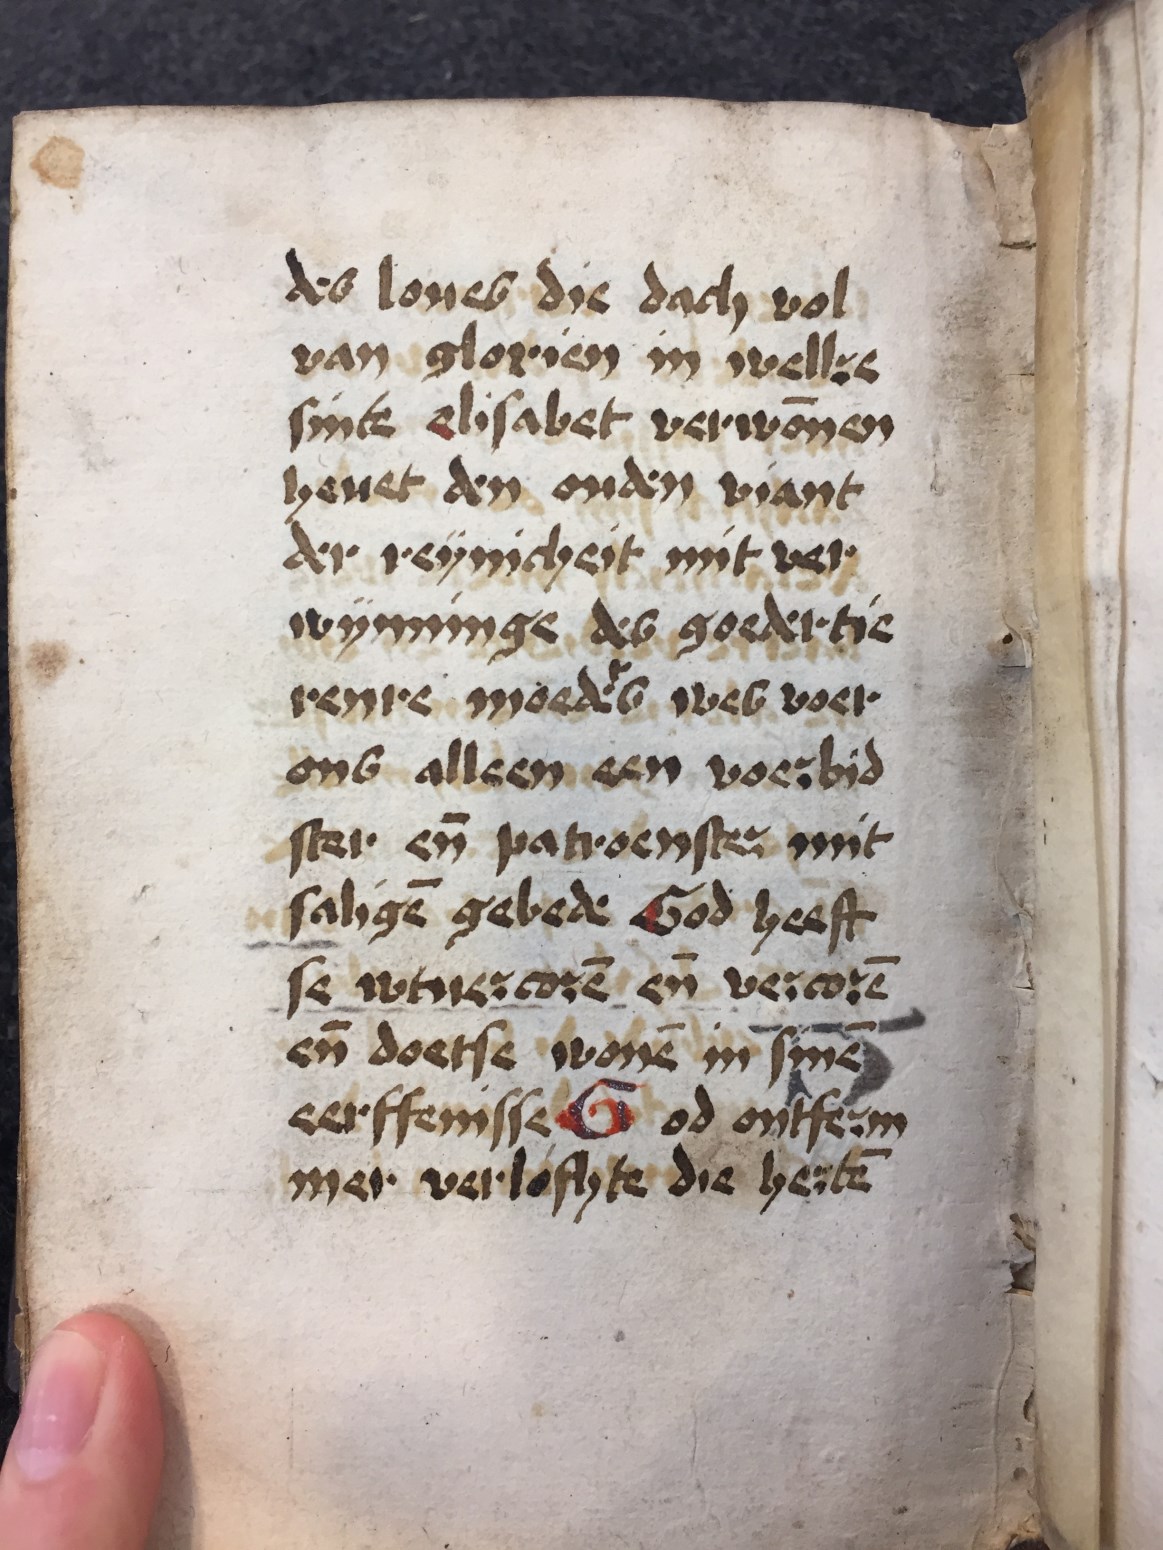 des loues die dach vol
van glorien in welke
sinte elisabet verwōnen
heuet den ouden viant
der reÿnicheit mit ver
wÿnninge des goedertie
renre moeders wes voer
ons alleen een voerbid
ster en̄ patroenster mit
saligē gebede God heeft
se wtuercorē en̄ vercorē
en̄ doetse wonē in sinē
eerffenisse God ontferm
mer verloshte die hertē